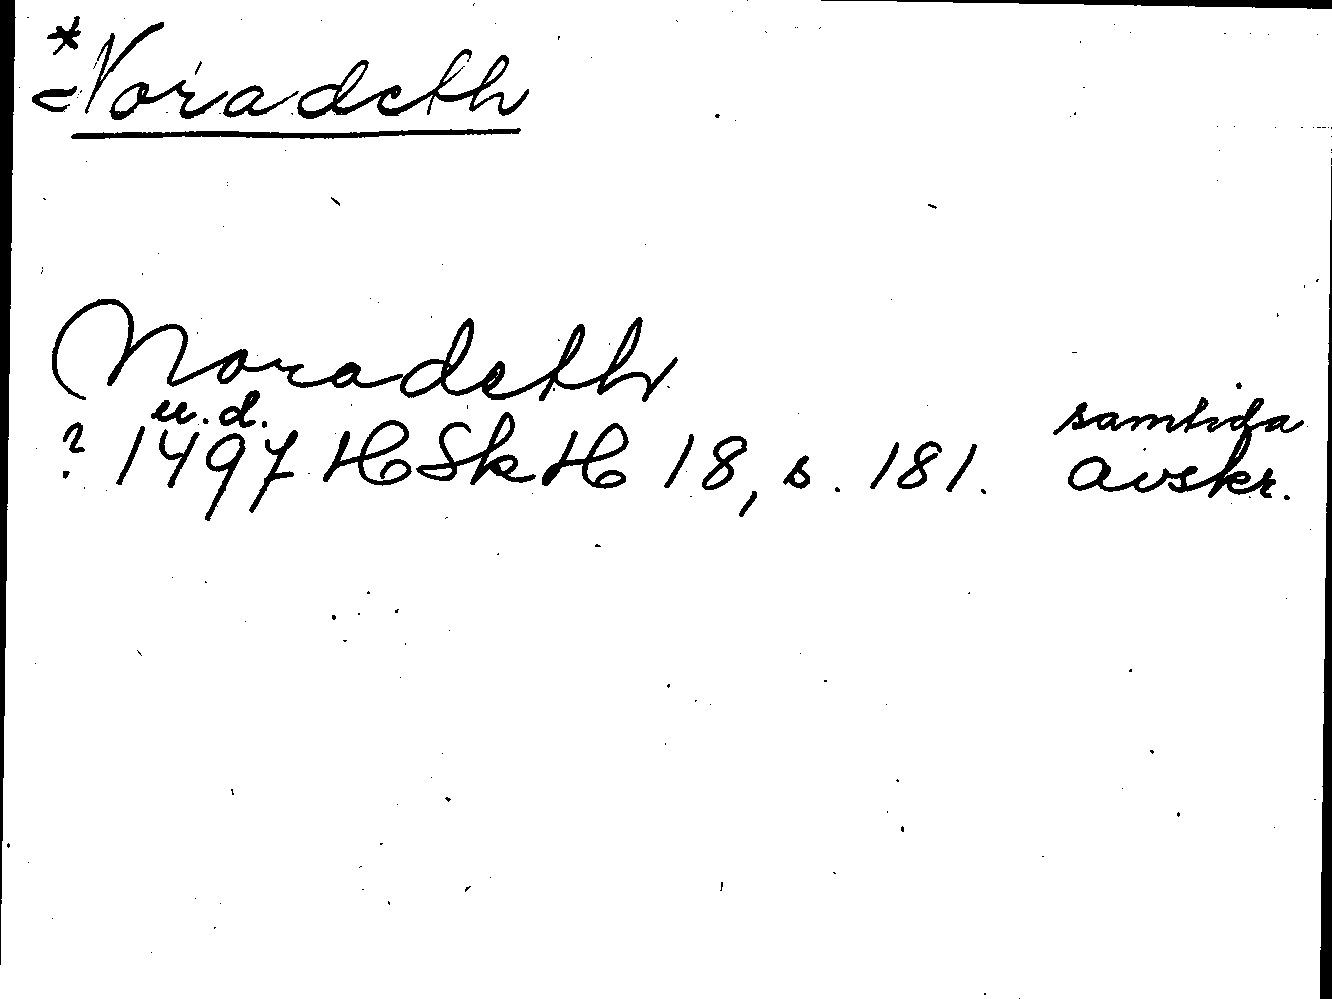 * =Noradeth
Noradeth
u.d.
? 1497 HSkH 18, s. 181. samtida avskr.